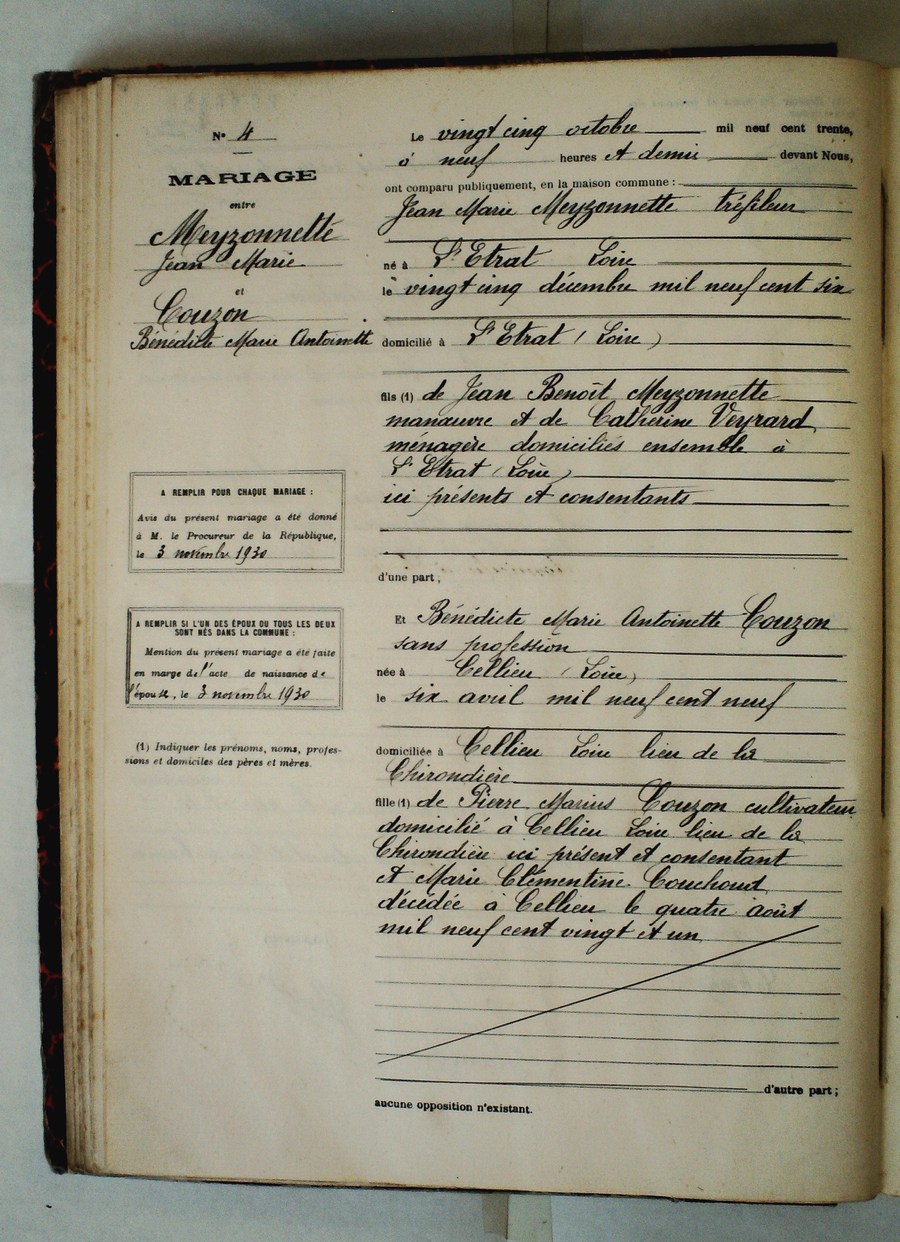 N° 4
MARIAGE
entre
Meyzonnette
Jean Marie
et
Couzon
Bénédicte Marie Antoinette
A REMPLIR POUR CHAQUE MARIAGE :
Avis du présent mariage a été donné
à M. le Procureur de la République,
le 3 novembre 1930
A REMPLIR SI L'UN DES ÉPOUX OU TOUS LES DEUX
SONT NÉS DANS LA COMMUNE :
Mention du présent mariage a été faite
en marge de l'acte de naissance de
l'épouse, le 3 novembre 1930
(1) Indiquer les prénoms, noms, profes-
sions et domiciles des pères et mères.
Le vingt cinq octobre mil neuf cent trente,
à neuf heures et demie devant Nous,
ont comparu publiquement, en la maison commune :
Jean Marie Meyzonnette tréfileur
né à L'Etrat Loire
le vingt cinq décembre mil neuf cent six
domicilié à L'Etrat (Loire)
fils (1) de Jean Benoît Meyzonnette
manœuvre et de Catherine Veyrard
ménagère domiciliés ensemble à
L'Etrat (Loire)
ici présents et consentants
d'une part ;
Et Bénédicte Marie Antoinette Couzon
sans profession
née à Cellieu (Loire)
le six avril mil neuf cent neuf
domiciliée à Cellieu Loire lieu de la
Chirondière
fille (1) de Pierre Marius Couzon cultivateur
domicilié à Cellieu Loire lieu de la
Chirondière ici présent et consentant
et Marie Clémentine Couchoud
décédée à Cellieu le quatre août
mil neuf cent vingt et un
d'autre part ;
aucune opposition n'existant.